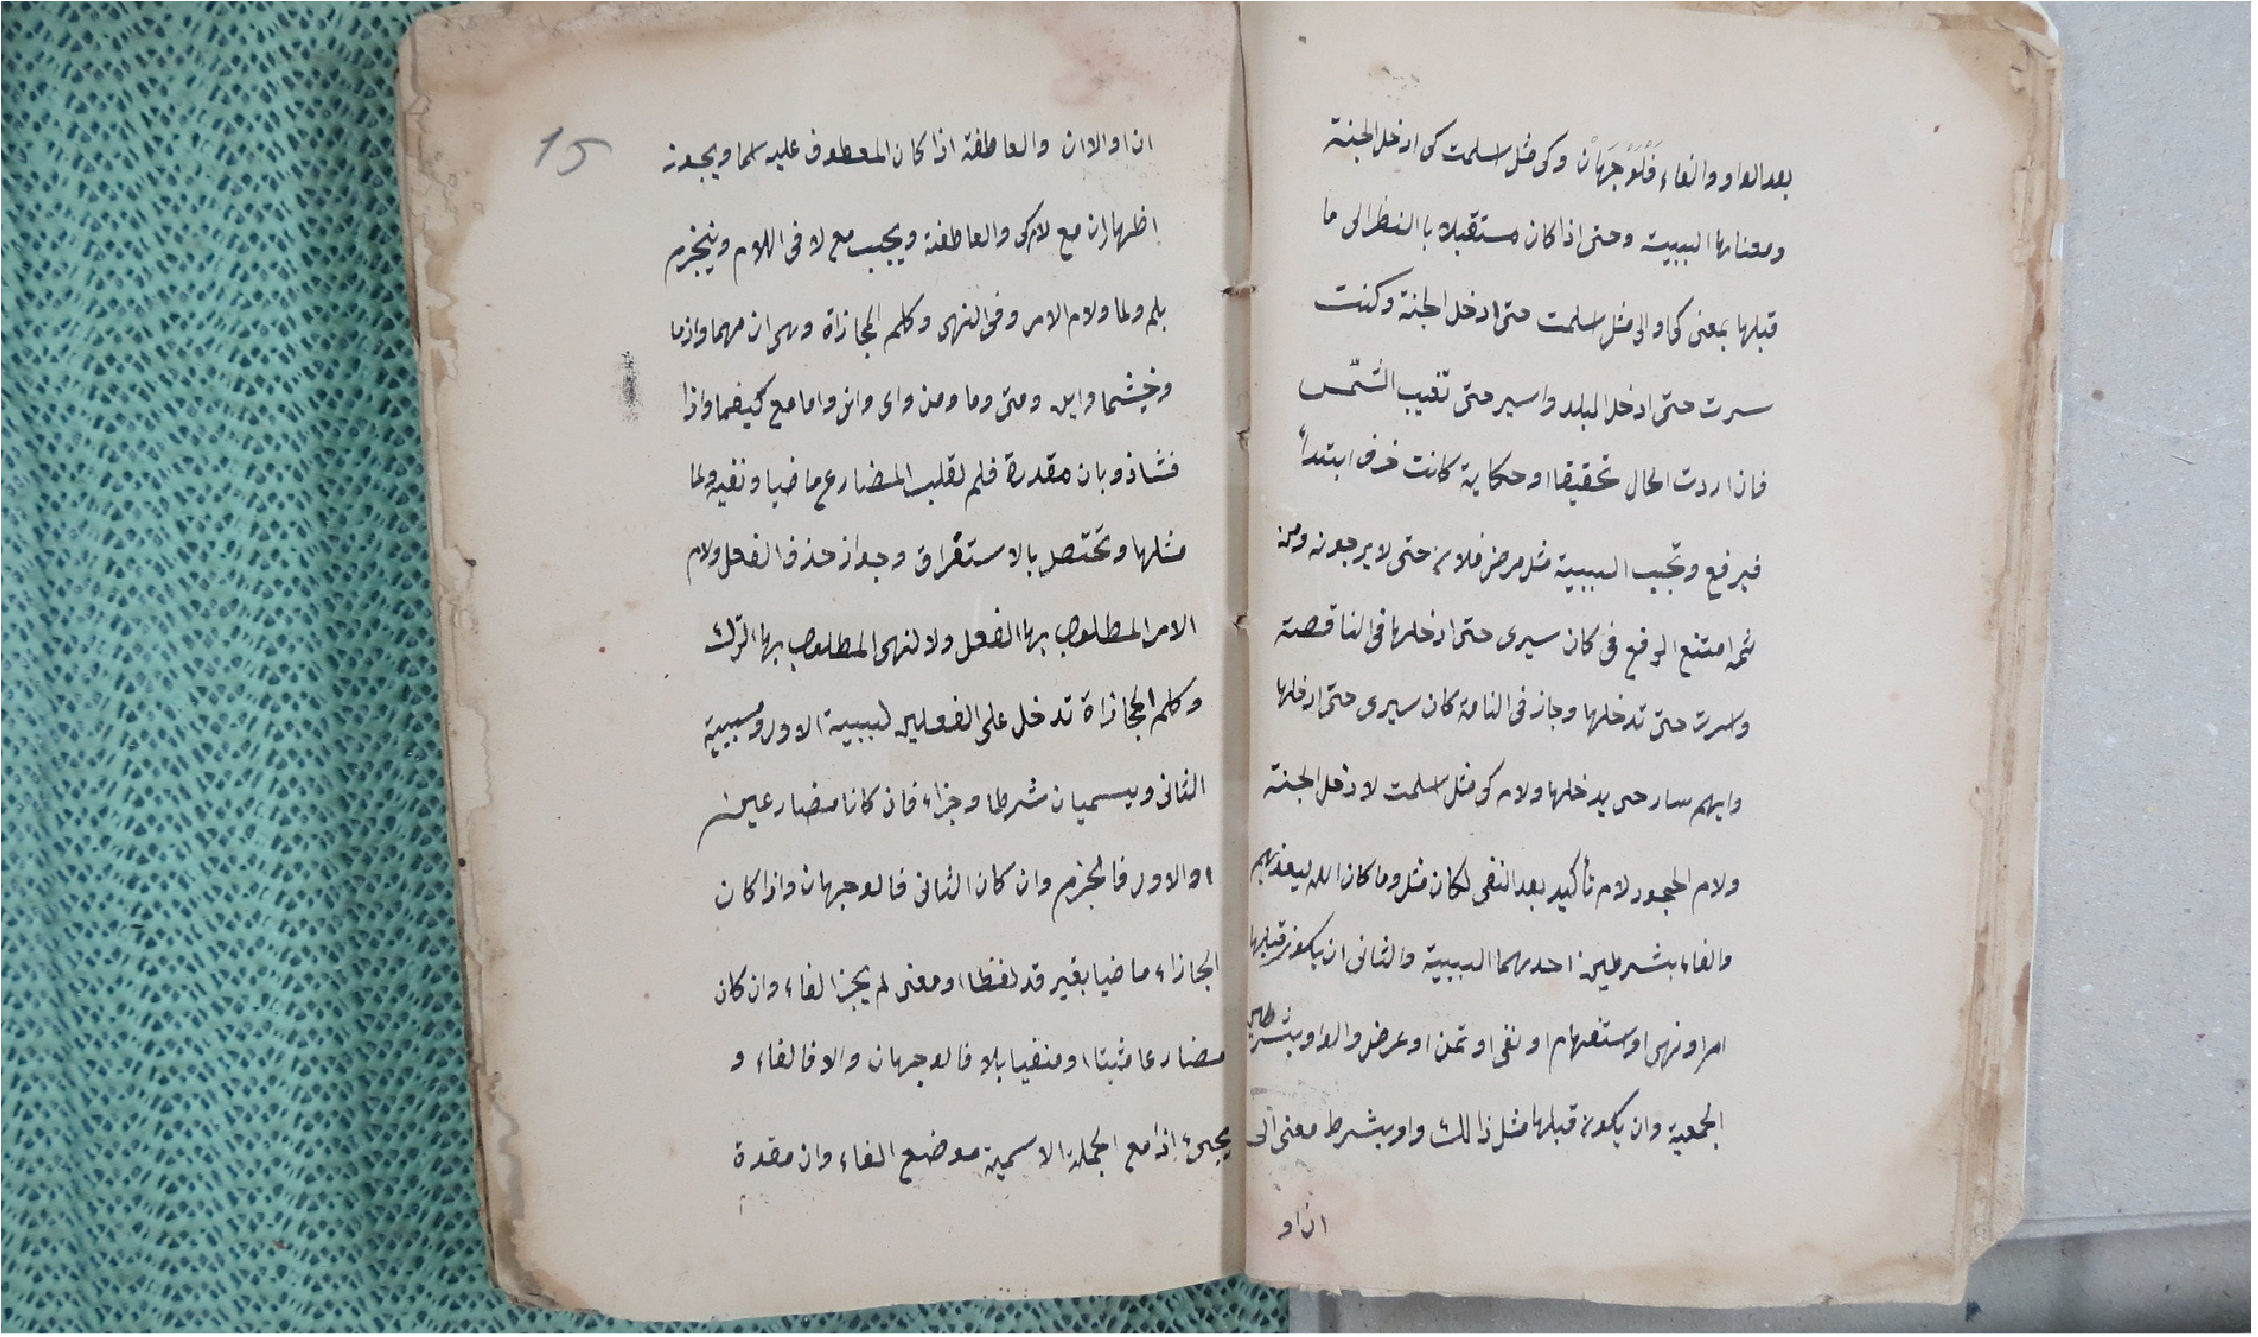 بعد الواو والفاء فَلَوَجَهَانْ وكى مثل اسلمت كى ادخل الجنة
ومعناها السببية وحتى اذا كان مستقبلا با النظر الى ما
قبلها بمعنى كى او الى مثل اسلمت حتى ادخل الجنة وكنت
سرت حتى ادخل البلد واسير حتى تغيب الشمس
فان اردت الحال تحقيقا او حكاية كانت حرف ابتدأ
فيرفع وتجب السببية مثل مرض فلان حتى لا يرجونه ومن
ثمه امتنع الرفع فى كان سيرى حتى ادخلها فى الناقصة
واسرت حتى تدخلها وجاز فى التامة كان سيرى حتى ادخلها
وايهم سار حتى يدخلها ولام كى مثل اسلمت لادخل الجنة
ولام الجحود لام تأكيد بعد النفى لكان مثل وما كان الله ليعذبهم
والفاء بشرطين احدهما السببية والثانى ان يكون قبلها
امر او نهى او ستفهام او نفى او تمن او عرض والواو بشرطين
الجمعية وان يكون قبلها مثل ذالك واو بشرط معنى الى
ان او
15
ان او الا ان والعاطفة اذا كان المعطوف عليه اسما ويجوز
اظهار ان مع لام كى والعاطفة ويجب مع لا فى اللام وينجزم
بلم ولما ولام الامر وفى النهى وكلم المجازاة وهى ان مهما واذما
وحيثما واين ومتى وما ومن واى وانى واما مع كيفما واذا
فشاذ وبان مقدرة فلم لقلب المضارع ماضيا ونفيه ولما
مثلها وتختص بالاستغراق وجواز حذف الفعل ولام
الامر المطلوب بها الفعل ولا لنهى المطلوب بها الترك
وكلم المجازاة تدخل على الفعلين لسببية الاول ومسببية
الثانى ويسميان شرطا وجزاء فان كانا مضارعين
او الاول فالجزم وان كان الثانى فالوجهان واذا كان
الجازاء ماضيا بغير قد لفظا او معنى لم يجز الفاء وان كان
مضارعا مثبتا او منفيا بلا فالوجهان والا فالفاء و
يجيئ اذا مع الجملة الاسمية موضع الفاء وان مقدرة